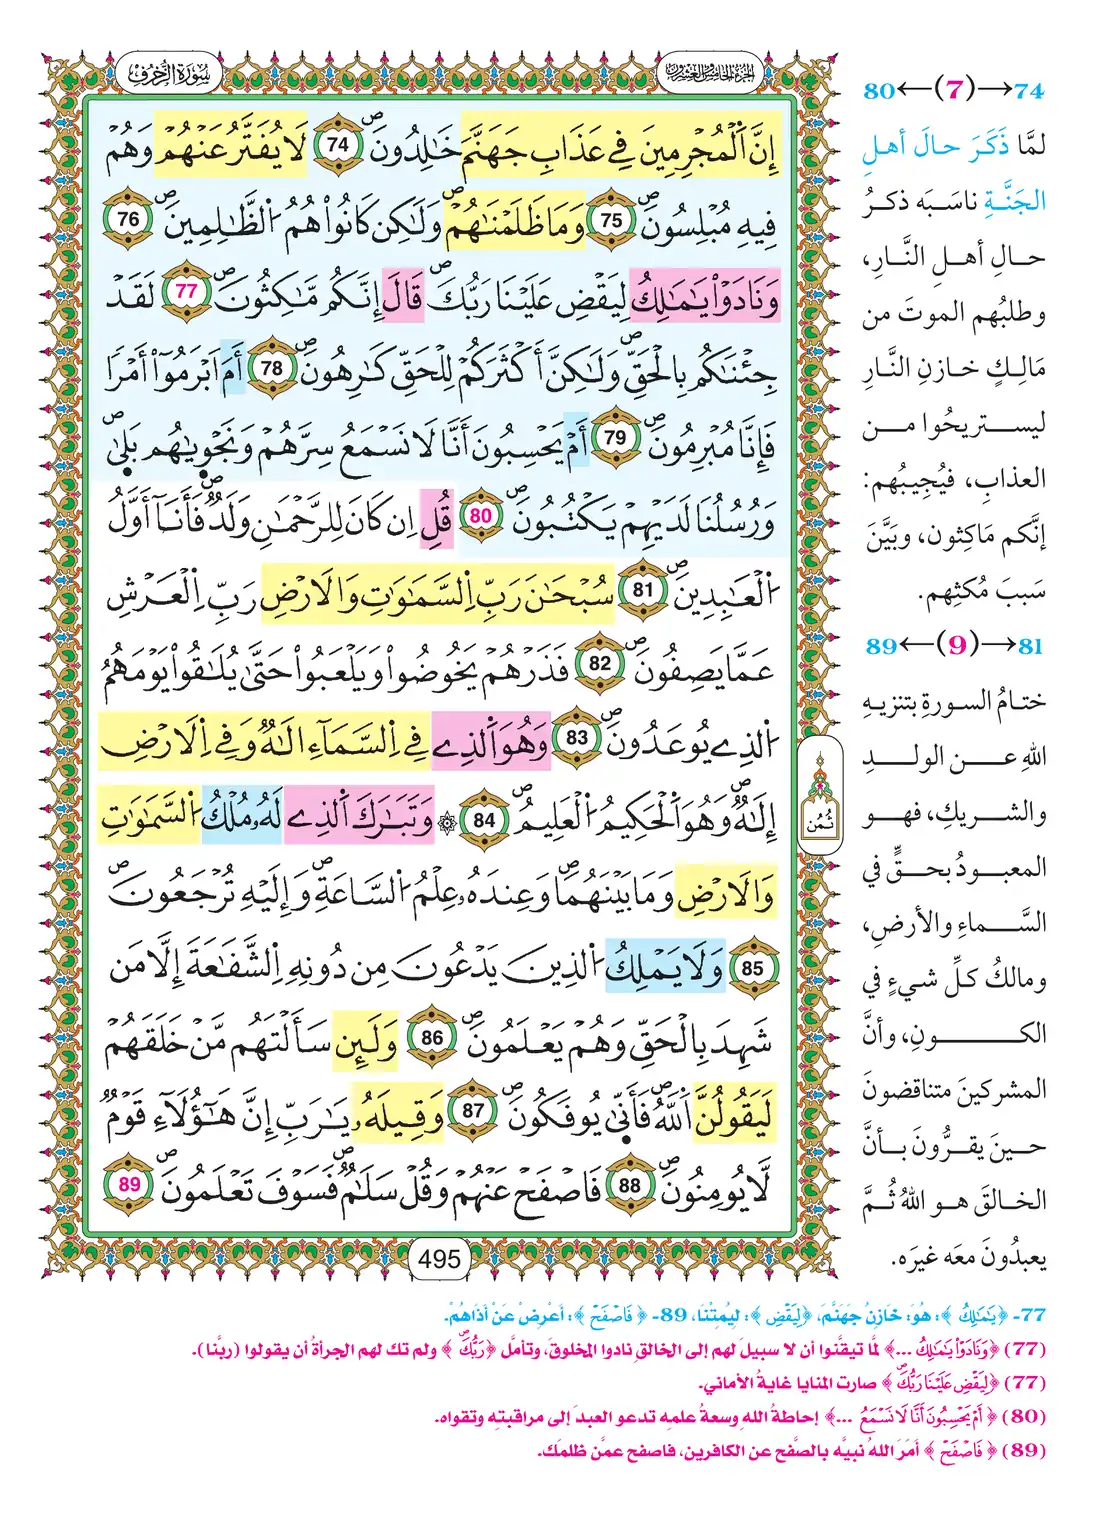 سُورَةُ الزُّخْرُفِ
الجزء الخامس والعشرون
إِنَّ اَ۬لْمُجْرِمِينَ فِے عَذَابِ جَهَنَّمَ خَٰلِدُونَۖ 74 لَا يُفَتَّرُ عَنْهُمْ وَهُمْ
فِيهِ مُبْلِسُونَۖ 75 وَمَا ظَلَمْنَٰهُمْۖ وَلَٰكِن كَانُواْ هُمُ اُ۬لظَّٰلِمِينَۖ 76
وَنَادَوْاْ يَٰمَٰلِكُ لِيَقْضِ عَلَيْنَا رَبُّكَۖ قَالَ إِنَّكُم مَّٰكِثُونَۖ 77 لَقَدْ
جِئْنَٰكُم بِالْحَقِّۖ وَلَٰكِنَّ أَكْثَرَكُمْ لِلْحَقِّ كَٰرِهُونَۖ 78 أَمَ اَبْرَمُوٓاْ أَمْراٗ
فَإِنَّا مُبْرِمُونَۖ 79 أَمْ يَحْسِبُونَ أَنَّا لَا نَسْمَعُ سِرَّهُمْ وَنَجْو۪يٰهُمۖ بَل۪يٰ
وَرُسُلُنَا لَدَيْهِمْ يَكْتُبُونَۖ 80 قُلِ اِن كَانَ لِلرَّحْمَٰنِ وَلَدٞۖ فَأَنَآ أَوَّلُ
اُ۬لْعَٰبِدِينَۖ 81 سُبْحَٰنَ رَبِّ اِ۬لسَّمَٰوَٰتِ وَالَارْضِ رَبِّ اِ۬لْعَرْشِ
عَمَّا يَصِفُونَۖ 82 فَذَرْهُمْ يَخُوضُواْ وَيَلْعَبُواْ حَتَّىٰ يُلَٰقُواْ يَوْمَهُمُ
اُ۬لذِے يُوعَدُونَۖ 83 وَهُوَ اَ۬لذِے فِے اِ۬لسَّمَآءِ الَٰهٞ وَفِے اِ۬لَارْضِ
إِلَٰهٞۖ وَهُوَ اَ۬لْحَكِيمُ اُ۬لْعَلِيمُۖ 84 ۞ وَتَبَٰرَكَ اَ۬لذِے لَهُۥ مُلْكُ اُ۬لسَّمَٰوَٰتِ
وَالَارْضِ وَمَا بَيْنَهُمَاۖ وَعِندَهُۥ عِلْمُ اُ۬لسَّاعَةِۖ وَإِلَيْهِ تُرْجَعُونَۖ
85 وَلَا يَمْلِكُ اُ۬لذِينَ يَدْعُونَ مِن دُونِهِ اِ۬لشَّفَٰعَةَ إِلَّا مَن
شَهِدَ بِالْحَقِّ وَهُمْ يَعْلَمُونَۖ 86 وَلَئِن سَأَلْتَهُم مَّنْ خَلَقَهُمْ
لَيَقُولُنَّ اَ۬للَّهُۖ فَأَنّ۪يٰ يُوفَكُونَۖ 87 وَقِيلَهُۥ يَٰرَبِّ إِنَّ هَٰٓؤُلَآءِ قَوْمٞ
لَّا يُومِنُونَۖ 88 فَاصْفَحْ عَنْهُمْ وَقُلْ سَلَٰمٞۖ فَسَوْفَ تَعْلَمُونَۖ 89
ثُمُن
495
74→(7)←80
لمَّا ذَكَرَ حالَ أهلِ
الجَنَّةِ ناسَبَه ذكرُ
حالِ أهلِ النَّارِ،
وطلبُهم الموتَ من
مَالِكٍ خازنِ النَّارِ
ليستريحُوا من
العذابِ، فيُجِيبُهم:
إنَّكم مَاكِثون، وبَيَّنَ
سَببَ مُكثِهم.
81→(9)←89
ختامُ السورةِ بتنزيهِ
اللهِ عن الولدِ
والشريكِ، فهو
المعبودُ بحقٍّ في
السَّماءِ والأرضِ،
ومالكُ كلِّ شيءٍ في
الكونِ، وأنَّ
المشركينَ متناقضونَ
حينَ يقرُّونَ بأنَّ
الخالقَ هو اللهُ ثُمَّ
يعبدُونَ معَه غيرَه.
77- ﴿يَٰمَٰلِكُ﴾: هُوَ: خَازِنُ جَهَنَّمَ، ﴿لِيَقْضِ﴾: لِيُمِتْنَا، 89- ﴿فَاصْفَحْ﴾: أَعْرِضْ عَنْ أَذَاهُمْ.
(77) ﴿وَنَادَوْاْ يَٰمَٰلِكُ ...﴾ لمَّا تيقَّنوا أن لا سبيلَ لهم إلى الخالقِ نادوا المخلوقَ، وتأمَّل ﴿رَبُّكَۖ﴾ ولم تك لهم الجرأةُ أن يقولوا (ربَّنا).
(77) ﴿لِيَقْضِ عَلَيْنَا رَبُّكَۖ﴾ صارت المنايا غايةُ الأماني.
(80) ﴿أَمْ يَحْسِبُونَ أَنَّا لَا نَسْمَعُ ...﴾ إحاطةُ اللهِ وسعةُ علمِه تدعو العبدَ إلى مراقبتِه وتقواه.
(89) ﴿فَاصْفَحْ﴾ أمَرَ اللهُ نبيَّه بالصَّفح عن الكافرين، فاصفح عمَّن ظلمَك.